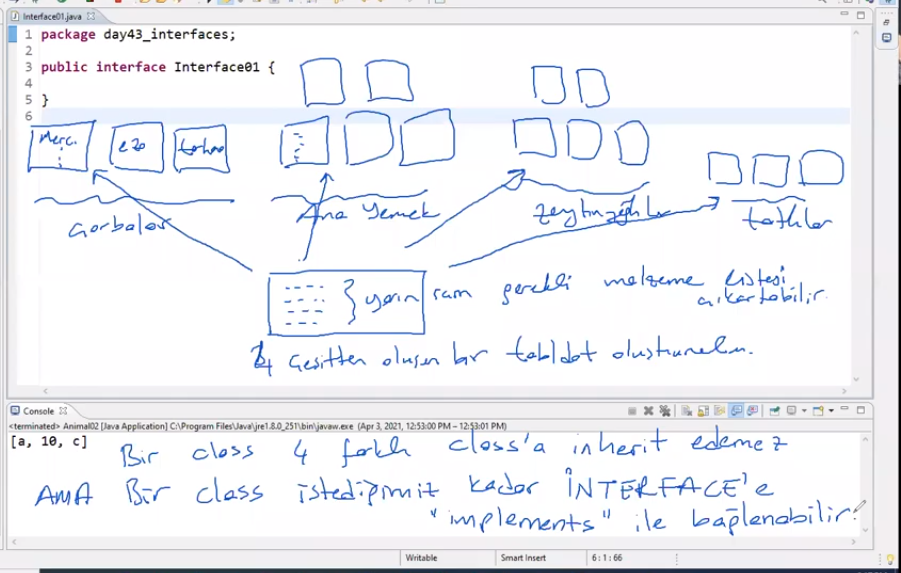 Interface01.java
1 package day43_interfaces;
2
3 public interface Interface01 {
4
5 }
6
Merc. ezo
Ana Yemek
tatlılar
yarın için gerekli malzeme listesi
çıkartabilir.
4 Çeşitten oluşan bir tabldot oluşturalım.
Console
<terminated> Animal02 [Java Application] C:\Program Files\Java\jre1.8.0_251\bin\javaw.exe (Apr 3, 2021, 12:53:00 PM – 12:53:01 PM)
[a, 10, c]
Bir class 4 farklı class'a inherit edemez
AMA Bir class istediğimiz kadar İNTERFACE'e
"implements" ile bağlanabilir.
Writable Smart Insert 6:1:66